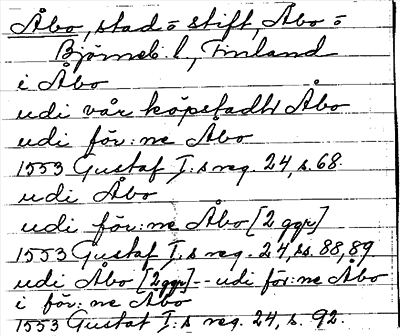 Åbo, stad o stift, Åbo o
Björneb. l, Finland
i Åbo
udi vår köpstadh Åbo
udi för:ne Åbo
1553 Gustaf I:s reg. 24, s. 68.
udi Åbo
udi för:ne Åbo [2 ggr]
1553 Gustaf I:s reg. 24, ss. 88, 89
udi Åbo [2 ggr] -- udi för:ne Åbo
i för:ne Åbo
1553 Gustaf I:s reg. 24, s. 92.